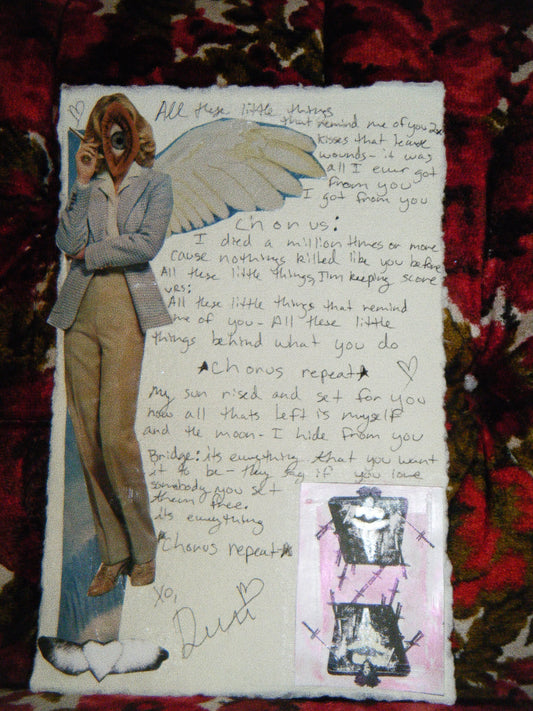 All these little things
that remind me of you 2x
kisses that leave
wounds - it was
all I ever got
from you
I got from you
Chorus:
I died a million times or more
cause nothings killed like you before
All these little things, I'm keeping score
vrs:
All these little things that remind
me of you - All these little
things behind what you do
Chorus repeat
My sun rised and set for you
now all thats left is myself
and the moon - I hide from you
Bridge: its everything that you want
it to be - they say if you love
somebody you set
them free.
its everything
Chorus repeat
xo,